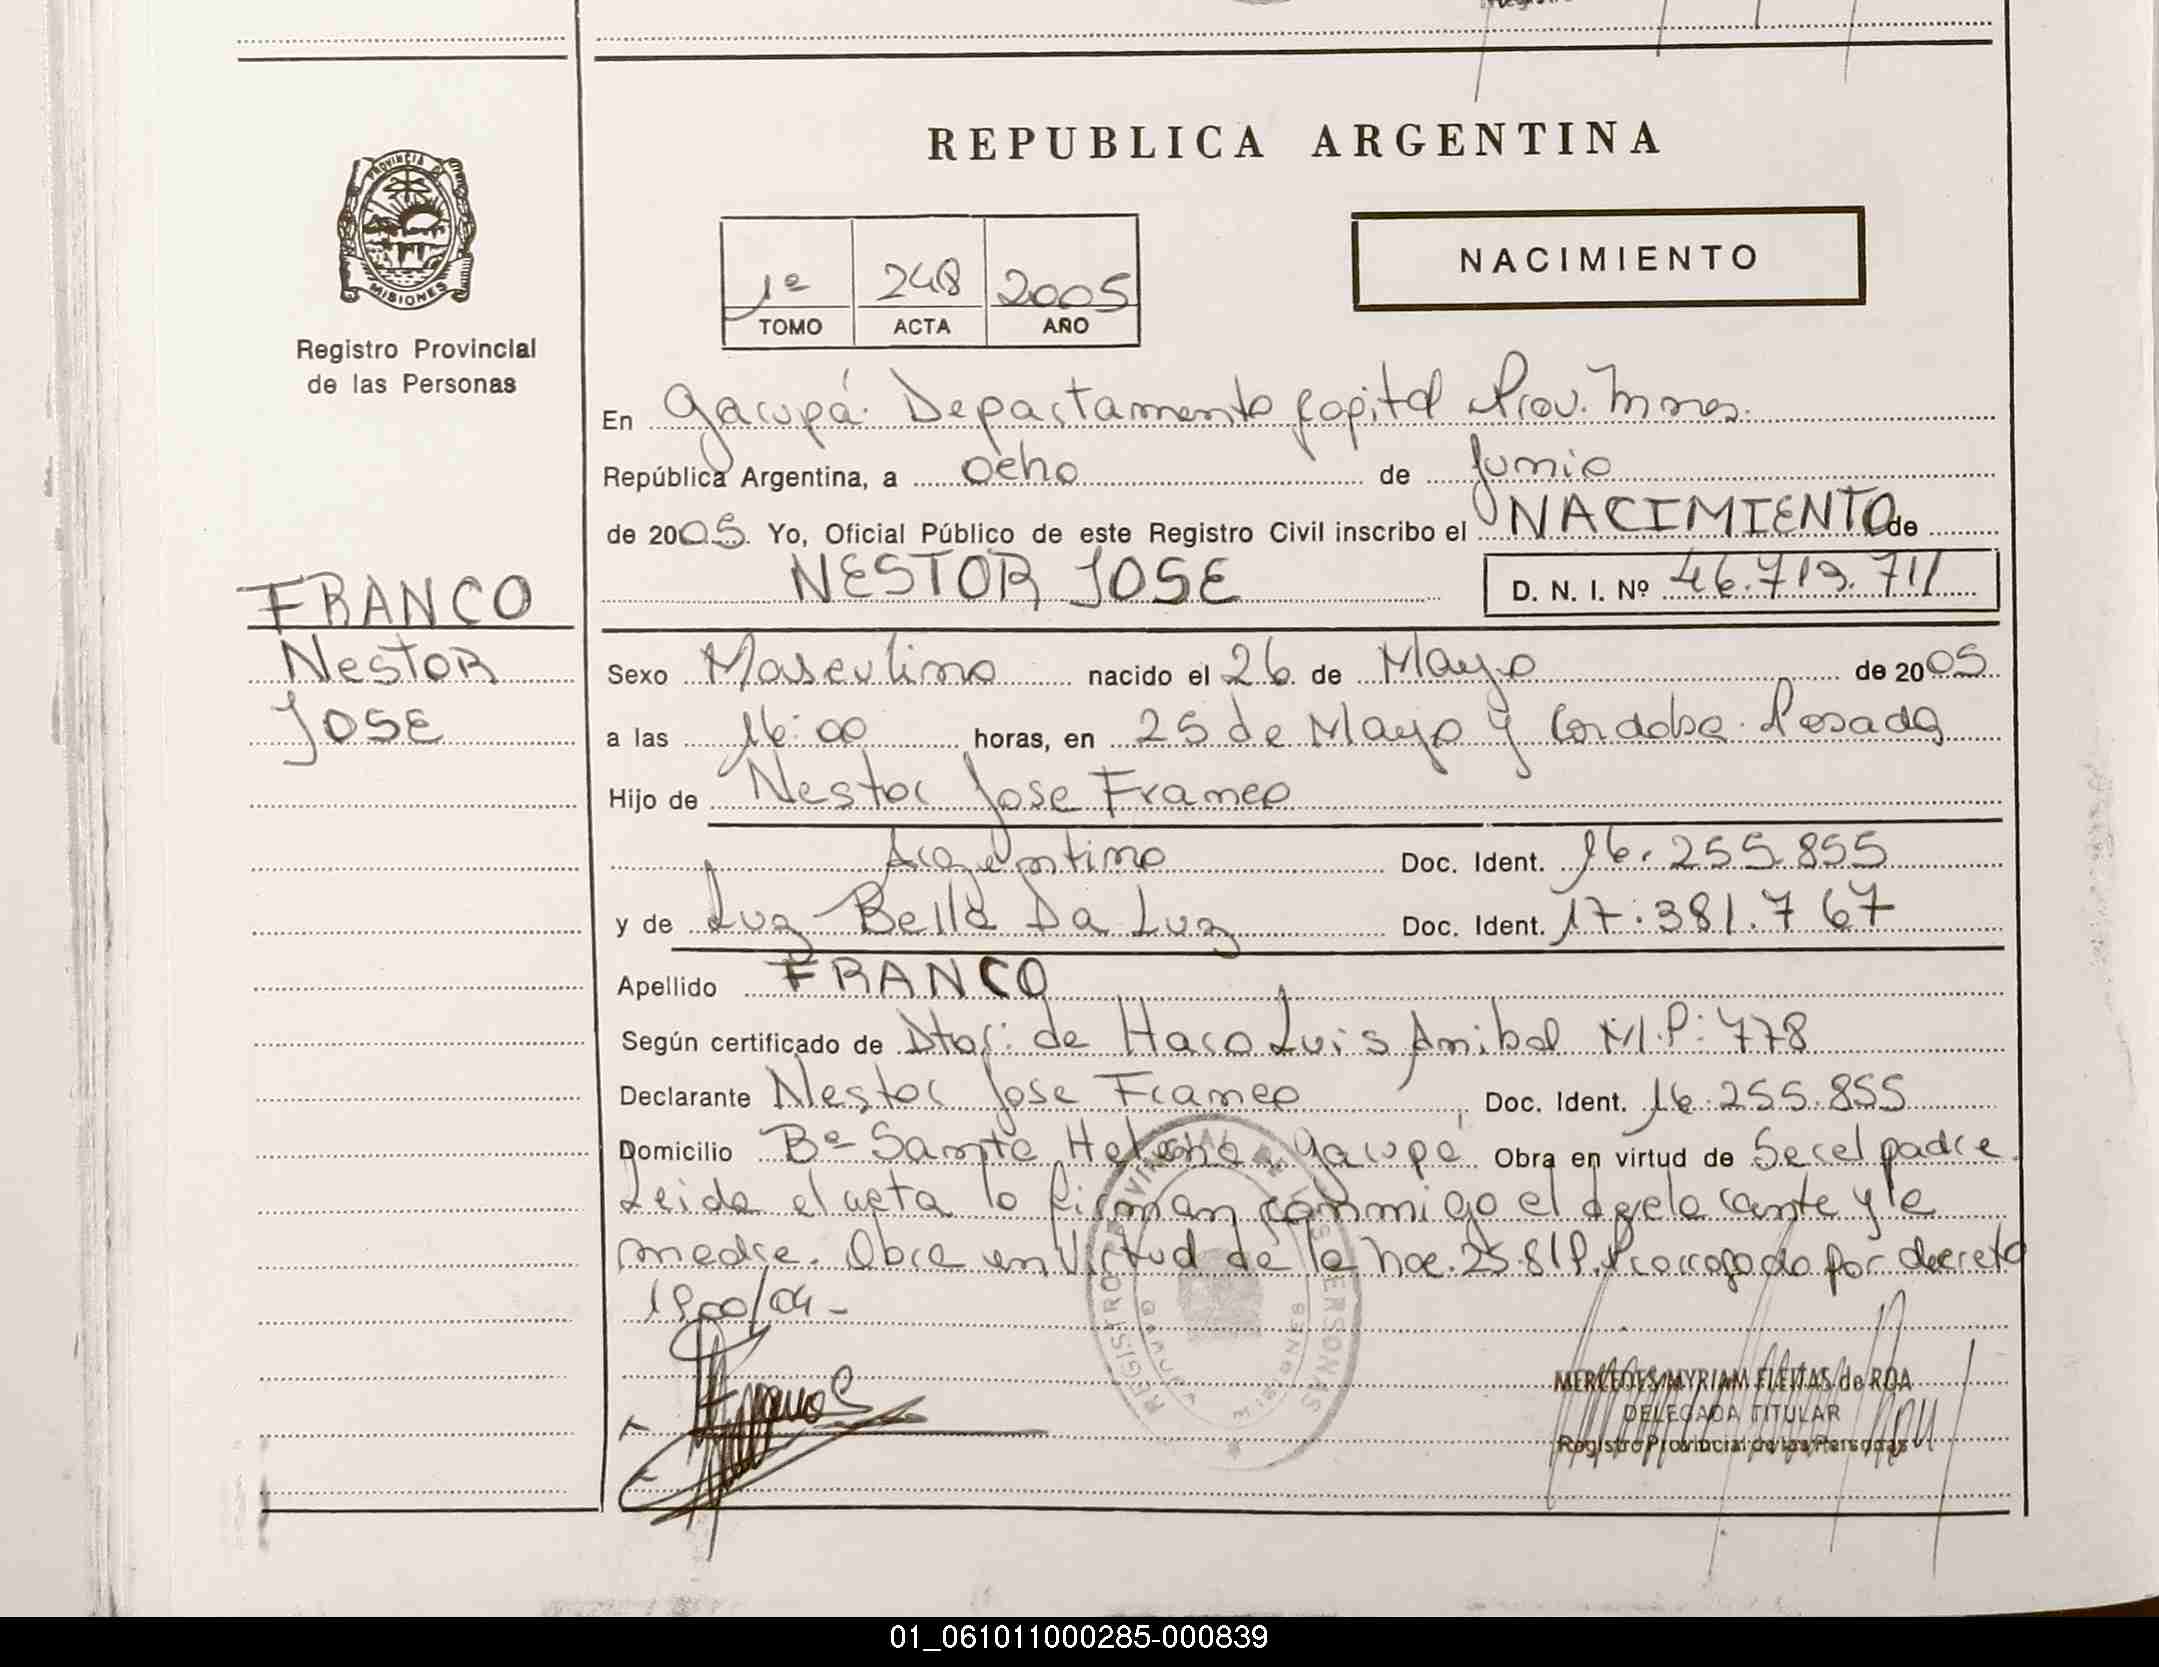 PROVINCIA DE
MISIONES
Registro Provincial
de las Personas
FRANCO
NESTOR
JOSE
REPUBLICA ARGENTINA
1º 248 2005
TOMO ACTA AÑO
NACIMIENTO
En Garupá. Departamento Capital Prov. Mnes.
República Argentina, a ocho de Junio
de 2005. Yo, Oficial Público de este Registro Civil inscribo el NACIMIENTO de
NESTOR JOSE D. N. I. Nº 46.719.711
Sexo Masculino nacido el 26 de Mayo de 2005
a las 16:00 horas, en 25 de Mayo y Cordoba. Posadas
Hijo de Nestor Jose Franco
Argentino Doc. Ident. 16.255.855
y de Luz Bella Da Luz Doc. Ident. 17.381.767
Apellido FRANCO
Según certificado de Dtor: de Haro Luis Anibal M.P: 778
Declarante Nestor Jose Franco, Doc. Ident. 16.255.855
Domicilio Bº Santa Helena. Garupá Obra en virtud de Ser el padre.
Leida el acta lo firman conmigo el declarante y la
madre. Obra en virtud de la 25.819. Prorrogado por decreto
1900/04-
REGISTRO PROVINCIAL DE LAS PERSONAS
GARUPA MISIONES
MERCEDES MYRIAM FLEITAS de ROA
DELEGADA TITULAR
Registro Provincial de las Personas
01_061011000285-000839